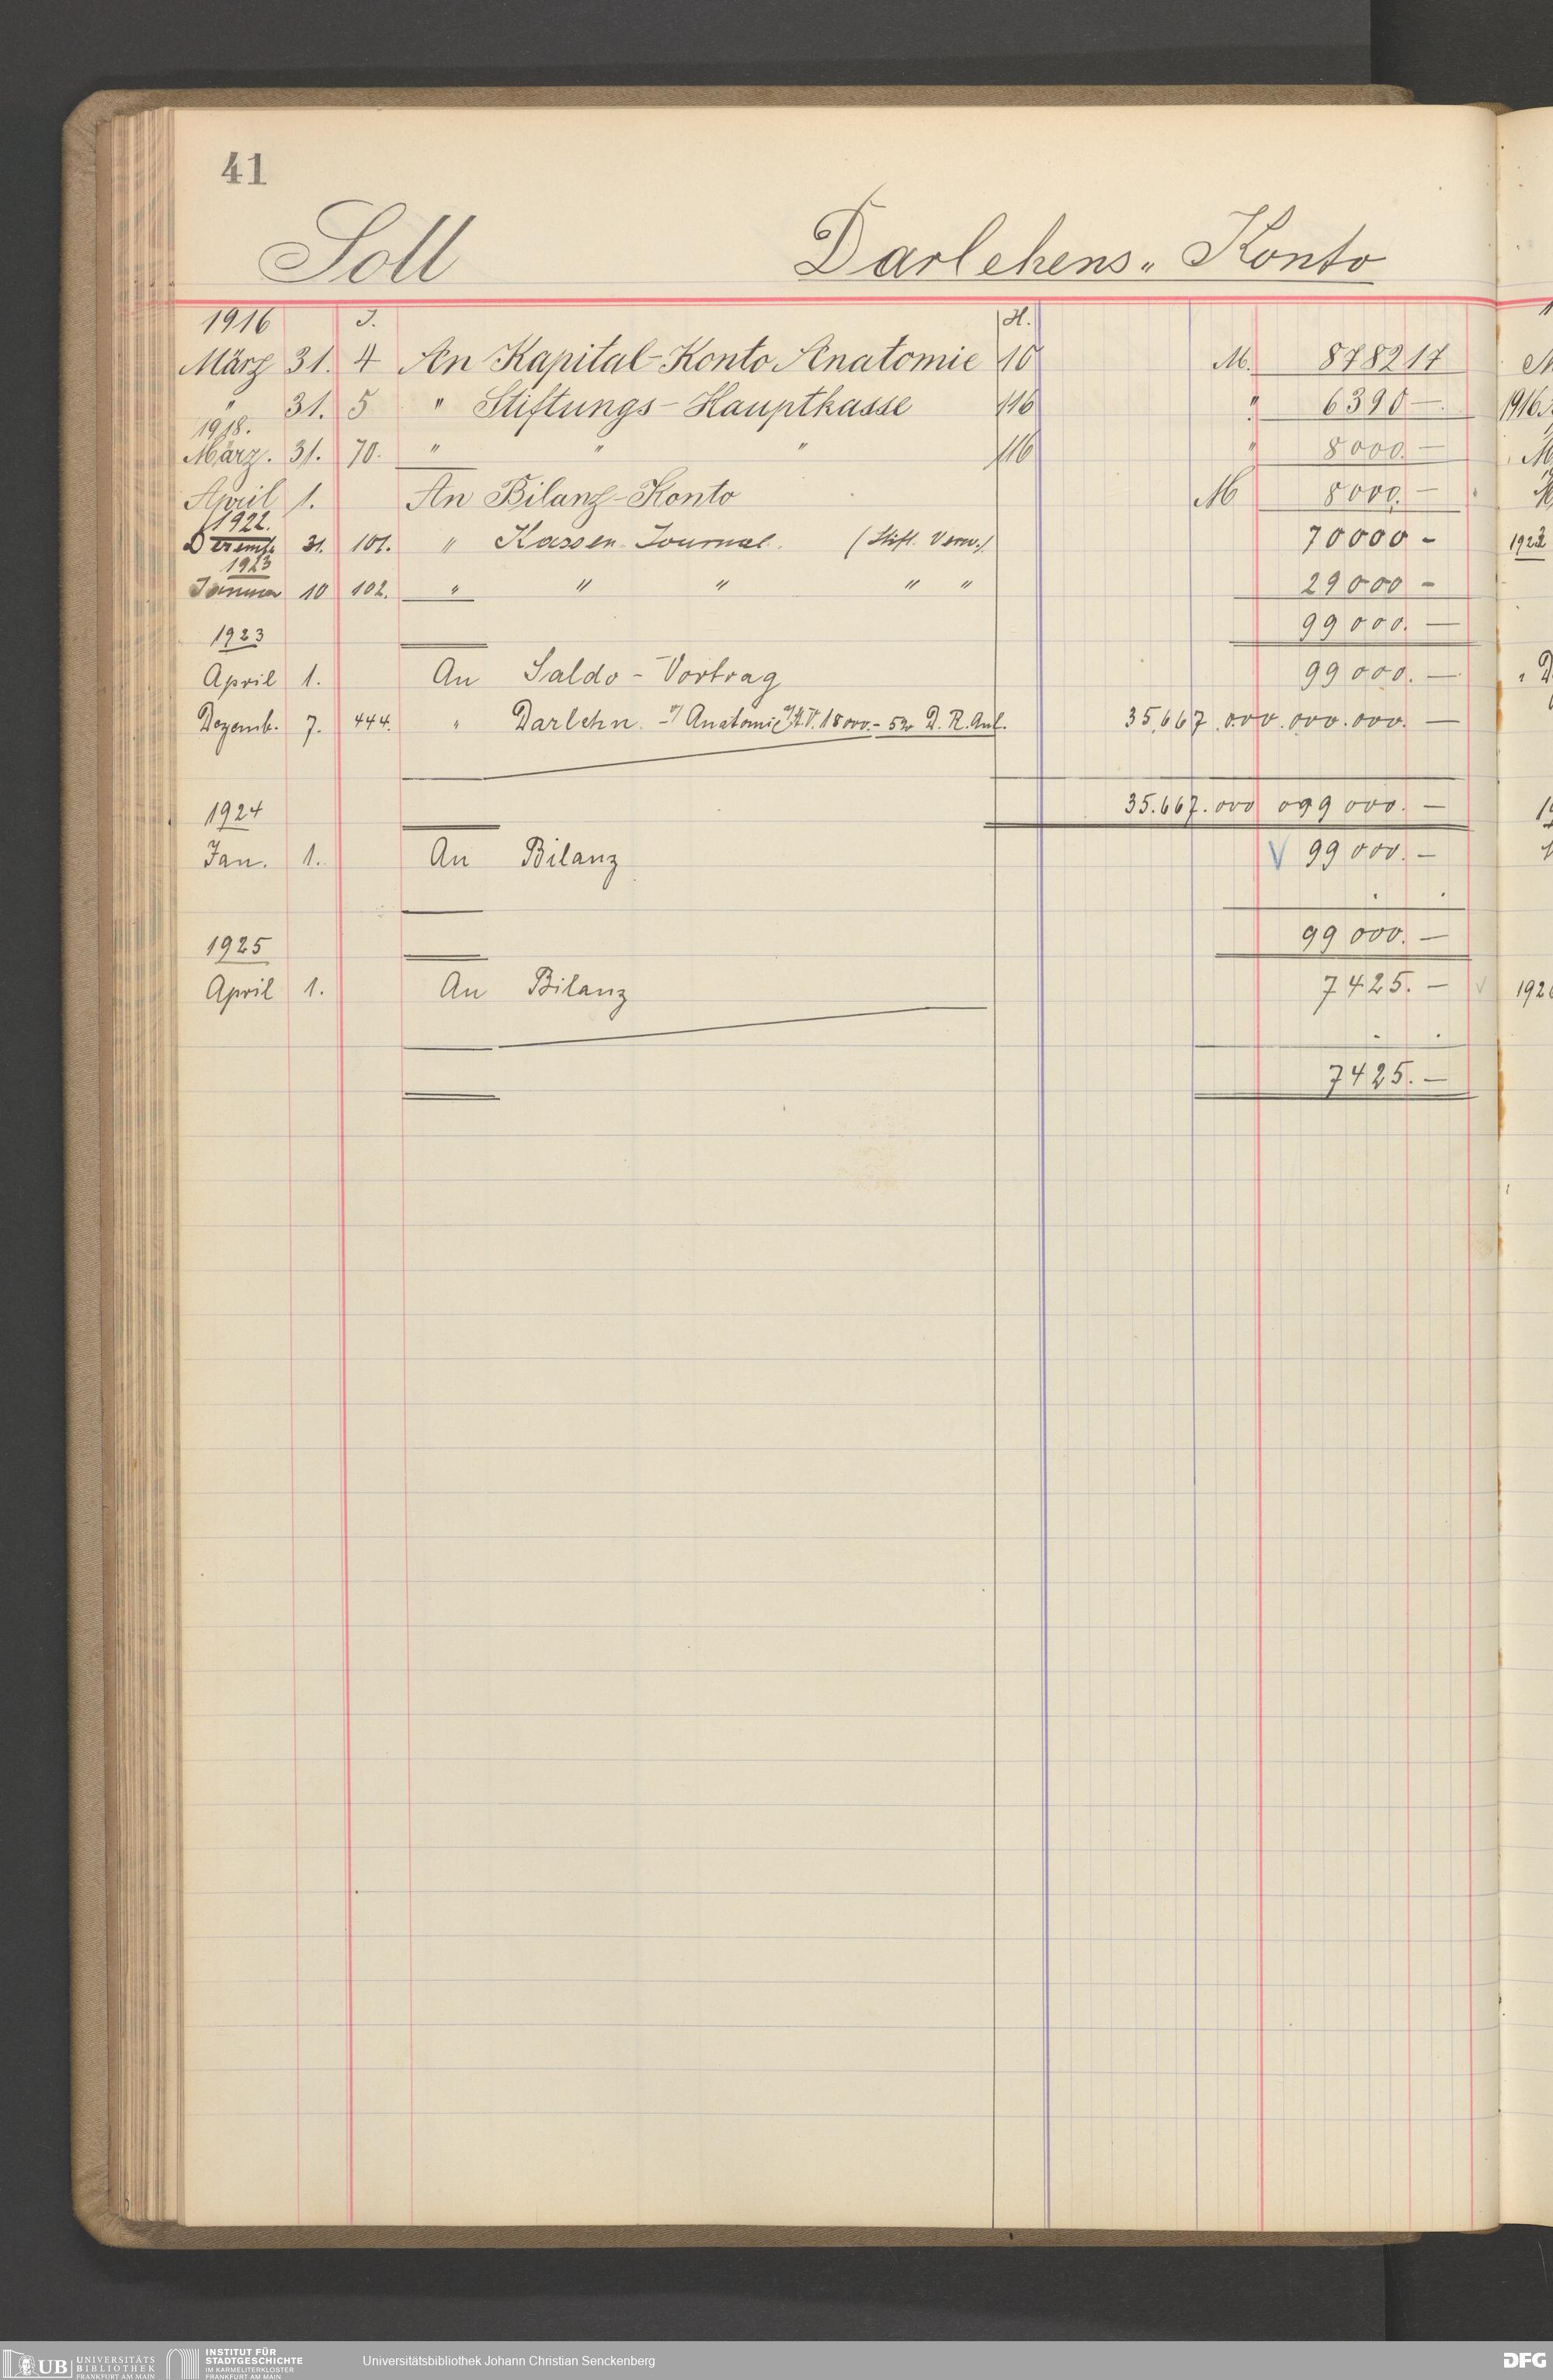 41
Soll Darlehens-Konto
1916 J. H.
März 31. 4 An Kapital-Konto Anatomie 10 M. 878217
" 31. 5 " Stiftungs-Hauptkasse 116 " 6390 —
1918.
März. 31. 70. " " " 116 " 8000. —
April 1. An Bilanz-Konto M 8000. —
1922.
Dezemb. 31. 101. " Kassen-Journal. (Stift. Verw.) 70000 -
1923
Januar 10 102. " " " " " 29000 -
99000. —
1923
April 1. An Saldo-Vortrag 99000. —
Dezemb. 7. 444. " Darlehn Anatomie 18000.- D. R. Anl. 35.667.000.000.000. —
35.667.000 099 000. —
1924
Jan. 1. An Bilanz 99000. —
99000. —
1925
April 1. An Bilanz 7425. —
7425. —
1922
UB UNIVERSITÄTS BIBLIOTHEK FRANKFURT AM MAIN
INSTITUT FÜR STADTGESCHICHTE IM KARMELITERKLOSTER FRANKFURT AM MAIN
Universitätsbibliothek Johann Christian Senckenberg
DFG